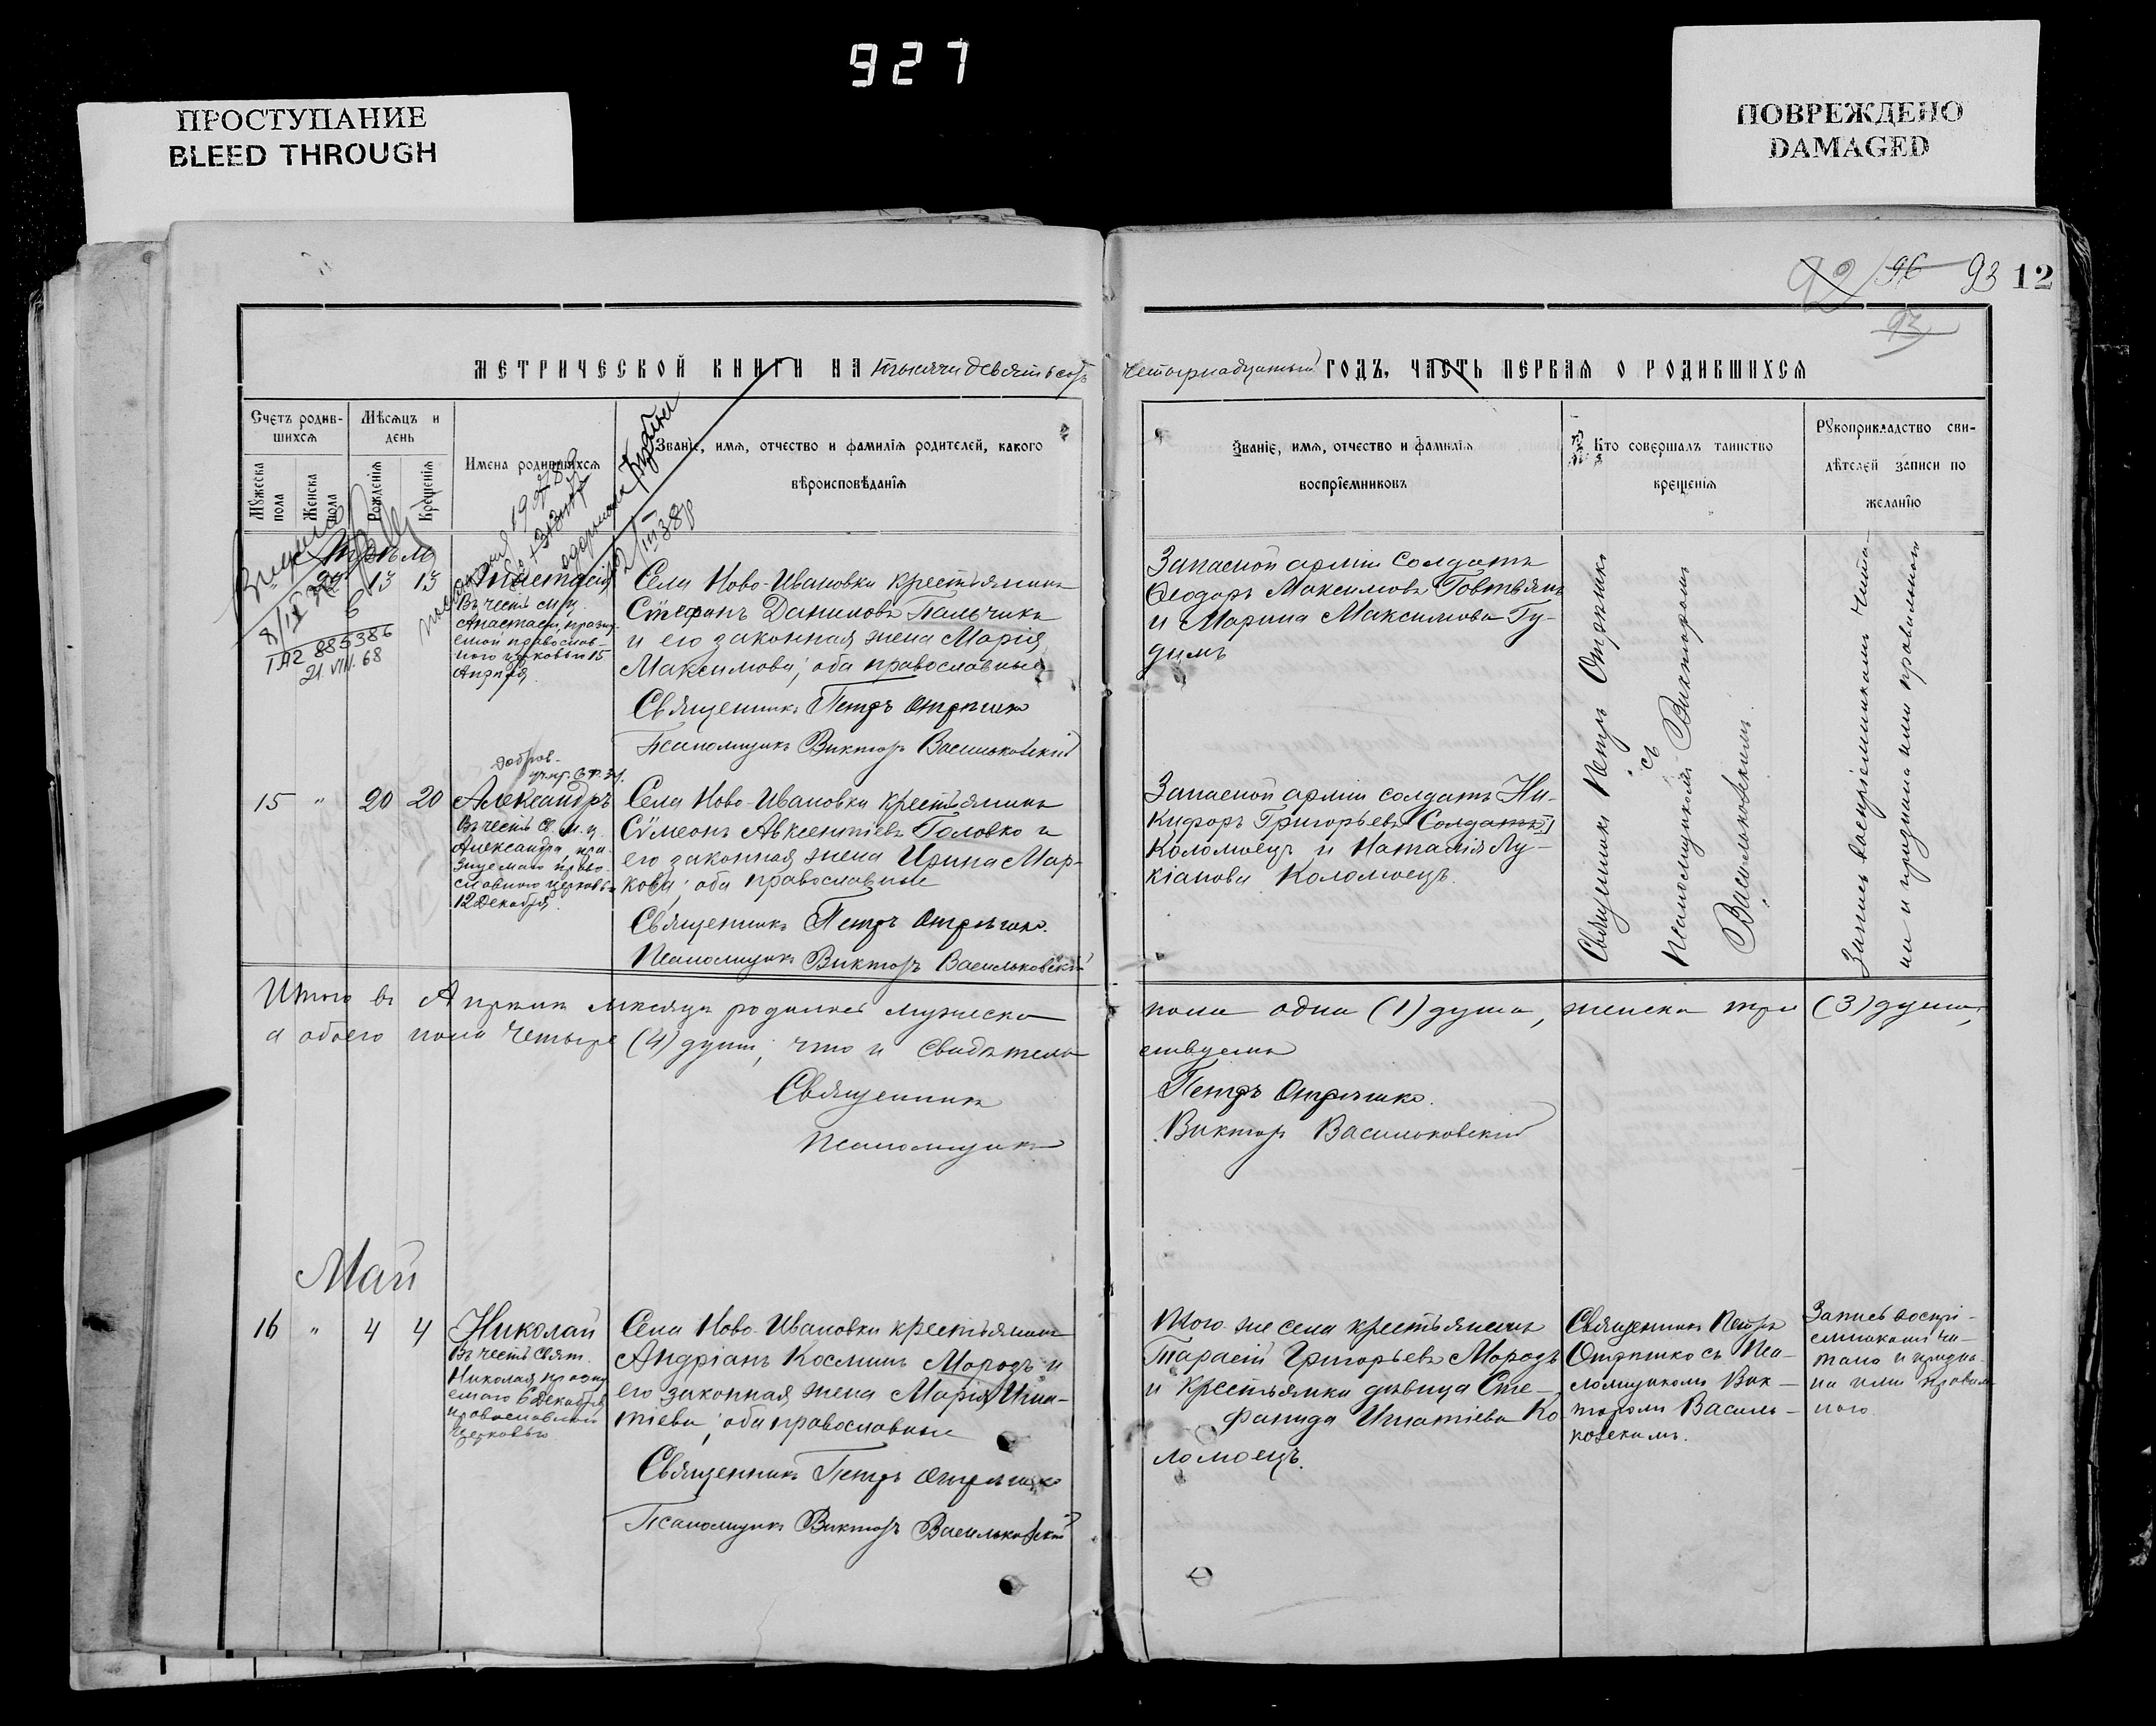 927
ПРОСТУПАНИЕ
BLEED THROUGH
ПОВРЕЖДЕНО
DAMAGED
92 96 93 12
93
МЕТРИЧЕСКОЙ КНИГИ НА тысяча девятьсотъ четырнадцатый ГОДЪ, ЧАСТЬ ПЕРВАЯ О РОДИВШИХСЯ
Счетъ родив-
шихся
Мужеска пола
Женска пола
Мѣсяцъ и
день
Рожденія
Крещенія
Имена родившихся
Званіе, имя, отчество и фамилія родителей, какого
вѣроисповѣданія
Званіе, имя, отчество и фамилія
воспріемниковъ
Кто совершалъ таинство
крещенія
Рукоприкладство сви-
дѣтелей записи по
желанію
Апрѣль
13 13
Анастасія
Въ честь м-ц.
Анастасіи, праздну-
емой православ-
ною церковью 15
Апрѣля.
885386
21.VIII.68
III 38р
Села Ново-Ивановки крестьянинъ
Стефанъ Даниловъ Пальчикъ
и его законная жена Марія
Максимова; оба православные
Священникъ Петръ Отрѣшко
Псаломщикъ Виктор Васильковскій
Запасной арміи солдатъ
Ѳеодоръ Максимовъ Говтвянъ
и Марина Максимова Гу-
димъ
Священникъ Петръ Отрѣшко
съ
Псаломщикомъ Викторомъ
Васильковскимъ.
Запись воспріемниками чита-
на и признана ими правильною
15 " 20 20
Александръ
Въ честь Св. м-ц.
Александра, пра-
зднуемаго право-
славною церковью
12 Декабря.
Села Ново-Ивановки крестьянинъ
Сѵмеонъ Авксентіевъ Головко и
его законная жена Ирина Мар-
кова; оба православные
Священникъ Петръ Отрѣшко.
Псаломщикъ Викторъ Васильковскій
Запасной арміи солдатъ Ни-
кифоръ Григорьевъ Солдатъ
Коломоецъ и Наталія Лу-
кіанова Коломоецъ.
Итого въ Апрѣлѣ мѣсяцѣ родилось мужеска пола одна (1) душа, женска три (3) души,
а обоего пола четыре (4) души, что и свидѣтель- ствуемъ
Священникъ Петръ Отрѣшко.
Псаломщикъ Викторъ Васильковскій
Май
16 " 4 4
Николай
Въ честь Свят.
Николая, праздну-
емаго 6 Декабря
православною
церковью
Села Ново-Ивановки крестьянинъ
Андріанъ Косминъ Морозъ и
его законная жена Марія Игна-
тіева; оба православные
Священникъ Петръ Отрѣшко
Псаломщикъ Викторъ Васильковскій
Того же села крестьянинъ
Тарасій Григорьевъ Морозъ
и крестьянка дѣвица Сте-
фанида Игнатіева Ко-
ломоецъ.
Священникъ Петръ
Отрѣшко съ Пса-
ломщикомъ Вик-
торомъ Василь-
ковскимъ.
Запись воспрі-
емниками чи-
тана и призна-
на ими правиль-
ною